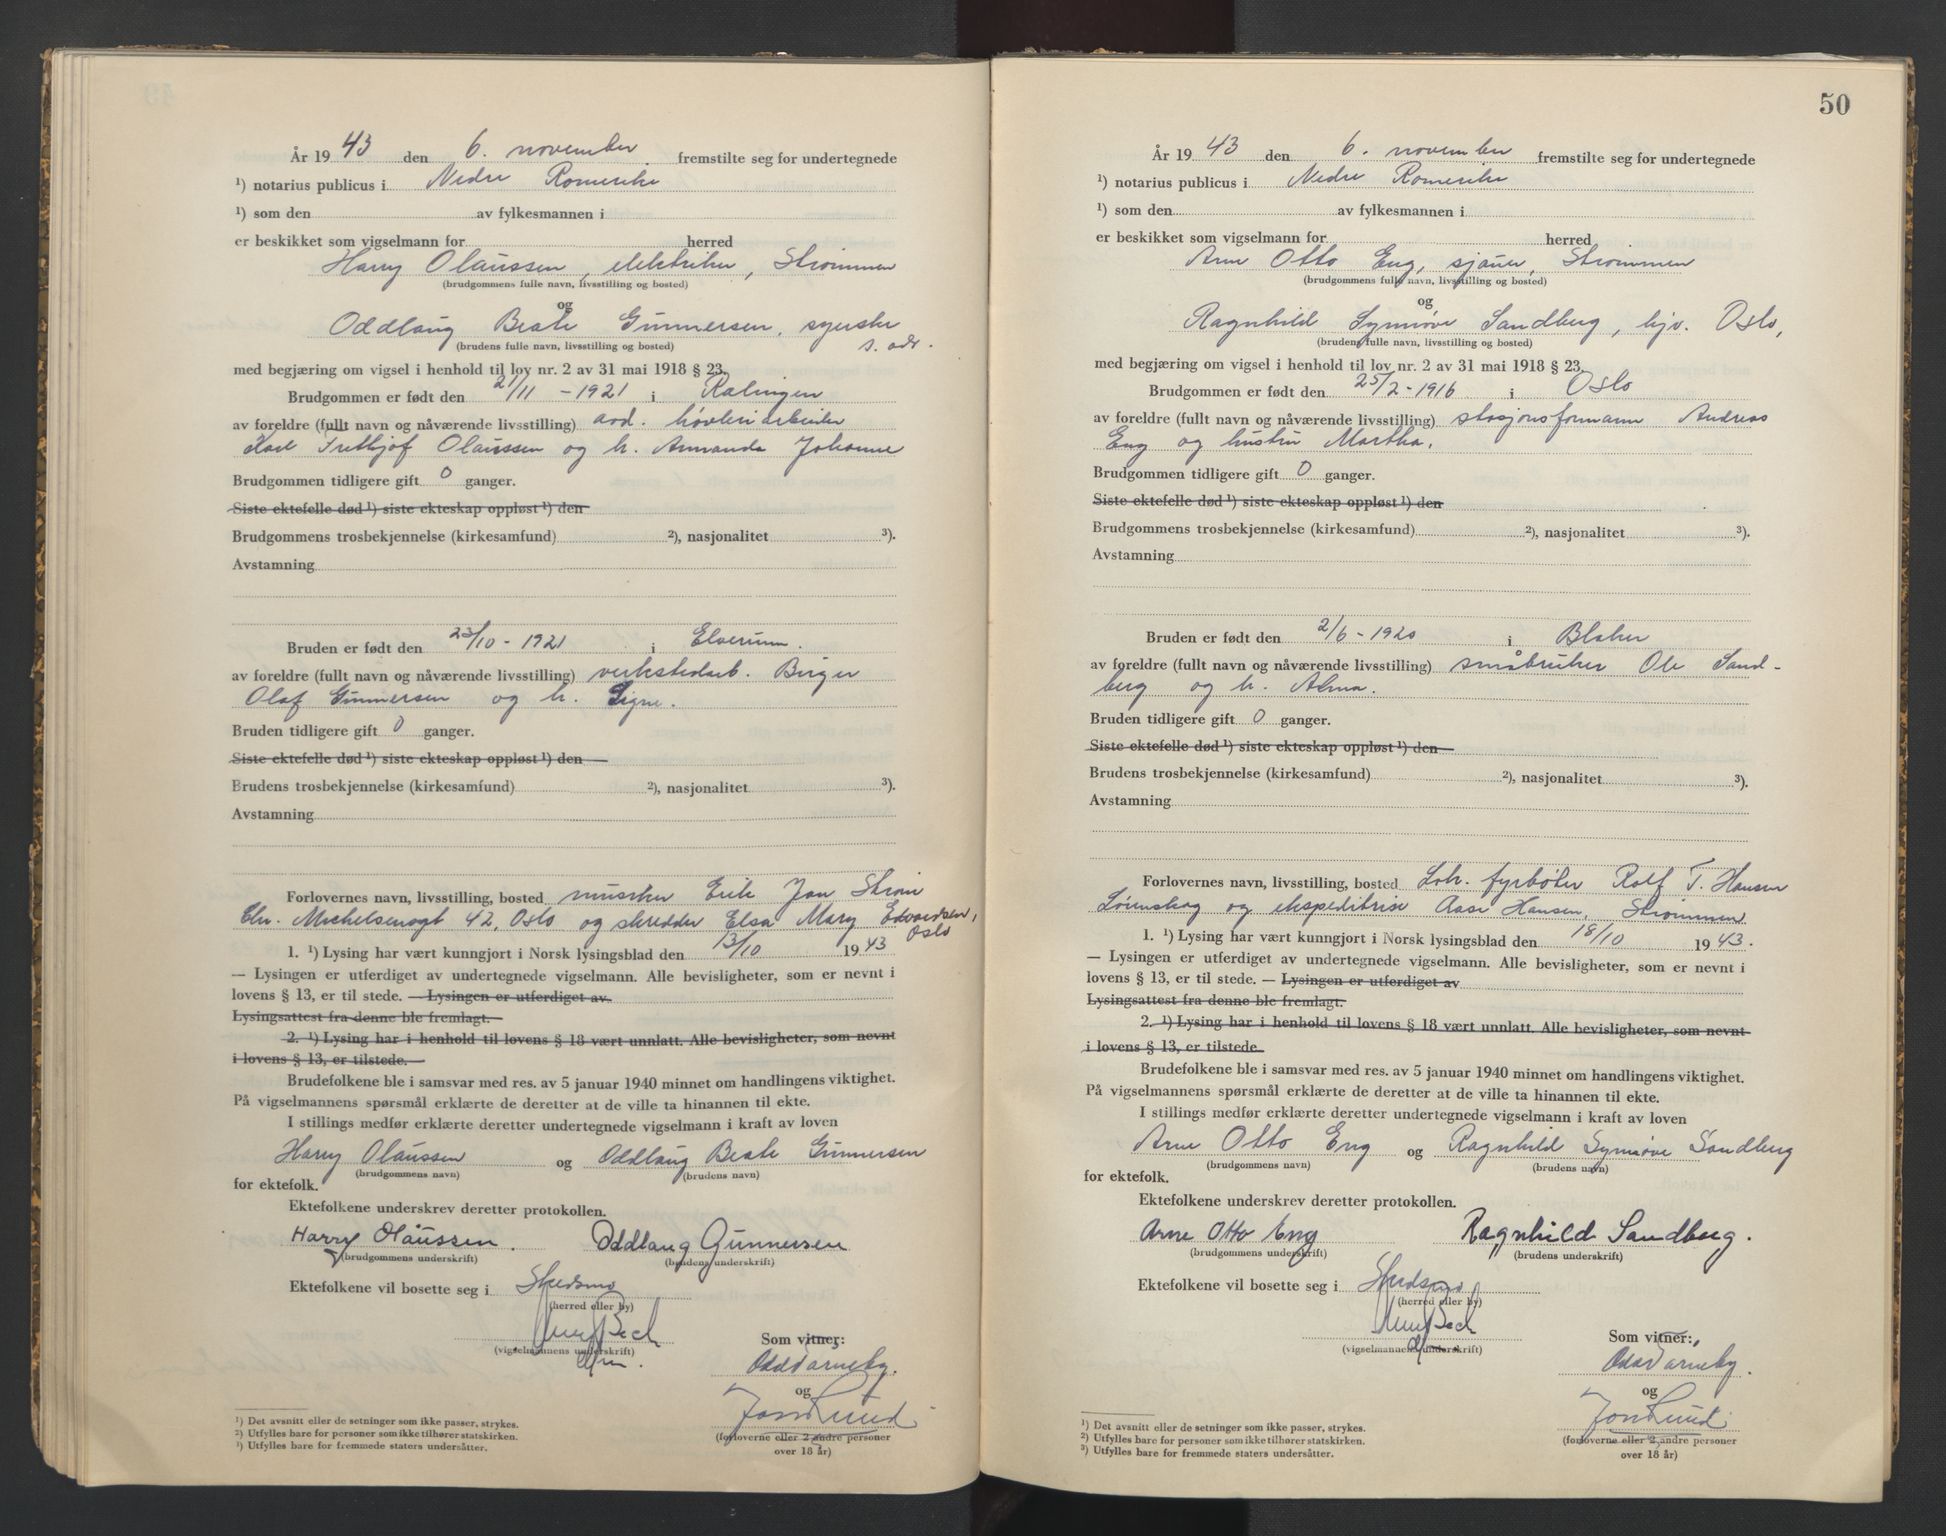 År 19 43 den 6. november fremstilte seg for undertegnede
¹) notarius publicus i Nedre Romerike
¹) som den av fylkesmannen i
er beskikket som vigselmann for herred
Harry Olaussen, elektriker, Strømmen
(brudgommens fulle navn, livsstilling og bosted)
og
Oddlaug Beate Gunnersen, syerske
s. adr.
(brudens fulle navn, livsstilling og bosted)
med begjæring om vigsel i henhold til lov nr. 2 av 31 mai 1918 § 23.
Brudgommen er født den 21/11 - 1921 i Rælingen
av foreldre (fullt navn og nåværende livsstilling) avd. høvleriarbeider
Karl Frithjof Olaussen og h. Amanda Johanne
Brudgommen tidligere gift 0 ganger.
Siste ektefelle død ¹) siste ekteskap oppløst ¹) den
Brudgommens trosbekjennelse (kirkesamfund) ²), nasjonalitet ³).
Avstamning
Bruden er født den 23/10 - 1921 i Elverum.
av foreldre (fullt navn og nåværende livsstilling) verkstedarb. Birger
Olaf Gunnersen og h. Signe.
Bruden tidligere gift 0 ganger.
Siste ektefelle død ¹) siste ekteskap oppløst ¹) den
Brudens trosbekjennelse (kirkesamfund) ²), nasjonalitet ³).
Avstamning
Forlovernes navn, livsstilling, bosted musiker Erik Jan Strøm
Chr. Michelsensgt 42, Oslo og skredder Elsa Mary Edvardsen,
Oslo
1. ¹) Lysing har vært kunngjort i Norsk lysingsblad den 13/10 19 43
— Lysingen er utferdiget av undertegnede vigselmann. Alle bevisligheter, som er nevnt i
lovens § 13, er til stede. — Lysingen er utferdiget av
Lysingsattest fra denne ble fremlagt.
2. ¹) Lysing har i henhold til lovens § 18 vært unnlatt. Alle bevisligheter, som nevnt
i lovens § 13, er tilstede.
Brudefolkene ble i samsvar med res. av 5 januar 1940 minnet om handlingens viktighet.
På vigselmannens spørsmål erklærte de deretter at de ville ta hinannen til ekte.
I stillings medfør erklærte deretter undertegnede vigselmann i kraft av loven
Harry Olaussen og Oddlaug Beate Gunnersen
(brudgommens navn) (brudens navn)
for ektefolk.
Ektefolkene underskrev deretter protokollen.
Harry Olaussen. Oddlaug Gunnersen
(brudgommens underskrift) (brudens underskrift)
Ektefolkene vil bosette seg i Skedsmo
(herred eller by)
Bech
(vigselmannens underskrift)
Som vitner:
Odd Varneby.
og
Jon Lund
(forloverne eller 2 andre personer
over 18 år)
¹) Det avsnitt eller de setninger som ikke passer, strykes.
²) Utfylles bare for personer som ikke tilhører statskirken.
³) Utfylles bare for fremmede staters undersåtter.
50
År 19 43 den 6. november fremstilte seg for undertegnede
¹) notarius publicus i Nedre Romerike
¹) som den av fylkesmannen i
er beskikket som vigselmann for herred
Arne Otto Eng, sjåuer, Strømmen
(brudgommens fulle navn, livsstilling og bosted)
og
Ragnhild Synnøve Sandberg, hjv. Oslo,
(brudens fulle navn, livsstilling og bosted)
med begjæring om vigsel i henhold til lov nr. 2 av 31 mai 1918 § 23.
Brudgommen er født den 25/2 - 1916 i Oslo
av foreldre (fullt navn og nåværende livsstilling) stasjonsformann Andreas
Eng og hustru Martha.
Brudgommen tidligere gift 0 ganger.
Siste ektefelle død ¹) siste ekteskap oppløst ¹) den
Brudgommens trosbekjennelse (kirkesamfund) ²), nasjonalitet ³).
Avstamning
Bruden er født den 2/6 - 1920 i Blaker
av foreldre (fullt navn og nåværende livsstilling) småbruker Ole Sand-
berg og h. Alma.
Bruden tidligere gift 0 ganger.
Siste ektefelle død ¹) siste ekteskap oppløst ¹) den
Brudens trosbekjennelse (kirkesamfund) ²), nasjonalitet ³).
Avstamning
Forlovernes navn, livsstilling, bosted Lok. fyrbøter Rolf T. Hansen
Lørenskog og ekspeditrise Aase Hansen, Strømmen
1. ¹) Lysing har vært kunngjort i Norsk lysingsblad den 18/10 19 43.
— Lysingen er utferdiget av undertegnede vigselmann. Alle bevisligheter, som er nevnt i
lovens § 13, er til stede. — Lysingen er utferdiget av
Lysingsattest fra denne ble fremlagt.
2. ¹) Lysing har i henhold til lovens § 18 vært unnlatt. Alle bevisligheter, som nevnt
i lovens § 13, er tilstede.
Brudefolkene ble i samsvar med res. av 5 januar 1940 minnet om handlingens viktighet.
På vigselmannens spørsmål erklærte de deretter at de ville ta hinannen til ekte.
I stillings medfør erklærte deretter undertegnede vigselmann i kraft av loven
Arne Otto Eng og Ragnhild Synnøve Sandberg
(brudgommens navn) (brudens navn)
for ektefolk.
Ektefolkene underskrev deretter protokollen.
Arne Otto Eng Ragnhild Sandberg.
(brudgommens underskrift) (brudens underskrift)
Ektefolkene vil bosette seg i Skedsmo
(herred eller by)
Bech
(vigselmannens underskrift)
Som vitner:
Odd Varneby.
og
Jon Lund
(forloverne eller 2 andre personer
over 18 år)
¹) Det avsnitt eller de setninger som ikke passer, strykes.
²) Utfylles bare for personer som ikke tilhører statskirken.
³) Utfylles bare for fremmede staters undersåtter.